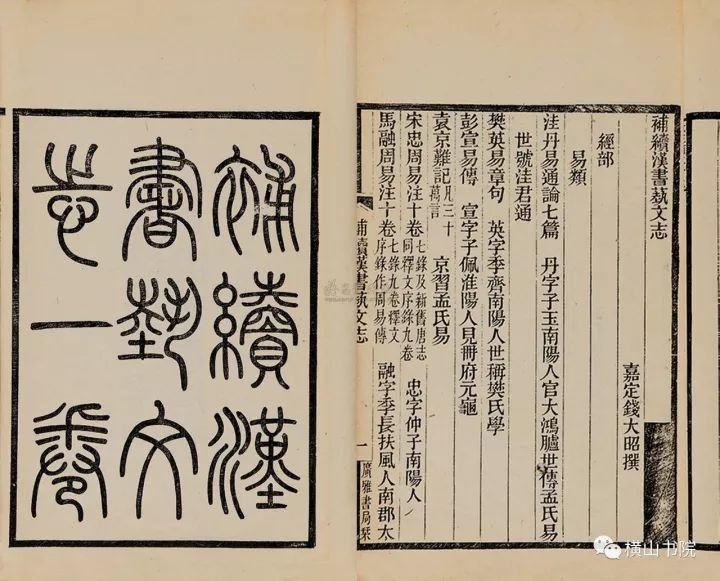 補續漢
書蓺文
志一卷
補續漢書蓺文志
嘉定錢大昭撰
經部
易類
洼丹易通論七篇 丹字子玉南陽人官大鴻臚世傳孟氏易
世號洼君通
樊英易章句 英字季齊南陽人世稱樊氏學
彭宣易傳 宣字子佩淮陽人見冊府元龜
袁京難記凡三十萬言 京習孟氏易
宋忠周易注十卷七錄及新舊唐志同釋文序錄九卷 忠字仲子南陽人
馬融周易注十卷七錄九卷釋文序錄作周易傳 融字季長扶風人南郡太
補續漢書蓺文志 一 廣雅書局栞
横山书院